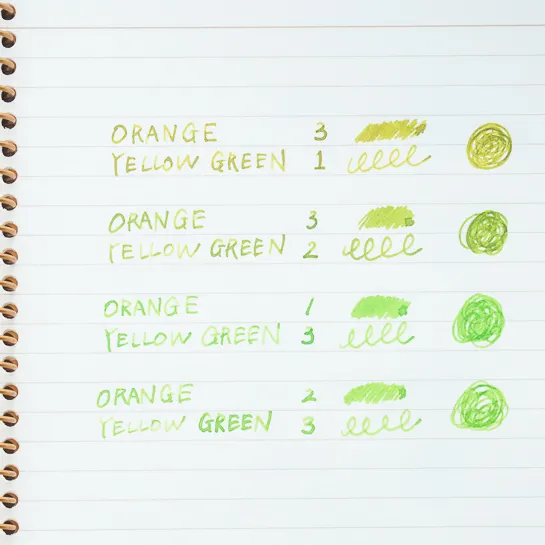 ORANGE 3
YELLOW GREEN 1
ORANGE 3
YELLOW GREEN 2
ORANGE 1
YELLOW GREEN 3
ORANGE 2
YELLOW GREEN 3